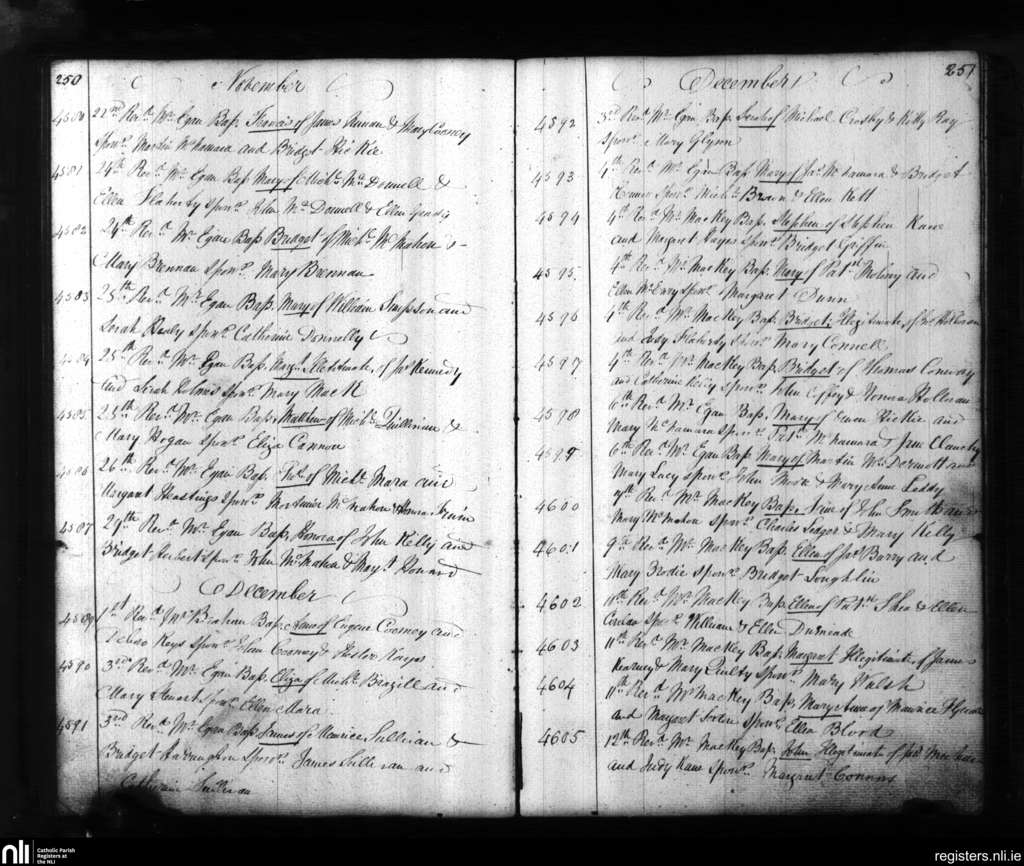 250
November
4580 22nd Revd. Mr. Egan Bap. Francis of James and Mary Cooney
Sponr. Martin McNamara and Bridget Hickie
4581 24th Revd. Mr. Egan Bap Mary of Michl. McDonnell &
Ellen Flaherty Sponr. John McDonnell & Ellen
4582 24th Revd. Mr. Egan Bap. Bridget of Michl. McMahon &
Mary Brennan Sponr. Mary Brennan
4583 25th Revd. Mr. Egan Bap. Mary of William Simpson and
Sarah Sponr. Catherine Donnelly
4584 25th Revd. Mr. Egan Bap. Margt. Illetetimate of Jas Kennedy
and Sarah Holmes Sponr. Mary Mack
4585 25th Revd. Mr. Egan Bap. Matthew of Michl. Quillinan &
Mary Hogan Sponr. Eliza Cannon
4586 26th Revd. Mr. Egan Bap. of Michl. Mara and
Margaret Heastings Sponr. Mortimer McMahon & Honora
4587 29th Revd. Mr. Egan Bap. Honora of John Kelly and
Bridget Herbert Sponr. John McMahon & Mary
December
4589 1st Revd. Mr. Bap. of Eugene Cooney and
Keys Sponr. John Cooney & Hester Keys
4590 3rd Revd. Mr. Egan Bap. Eliza of Michl. Brazill and
Mary Sponr. Ellen Mara
4591 3rd Revd. Mr. Egan Bap. James of Maurice Sullivan &
Bridget Sponr. James Sullivan and
Catherine Sullivan
251
December
4592 3rd Revd. Mr. Egan Bap. Sarah of Michael Crosby & Kitty Ray
Sponr. Mary Glynn
4593 4th Revd. Mr. Egan Bap Mary of Jas. McNamara & Bridget
Sponr. Michl. Brown & Ellen Kett
4594 4th Revd. Mr. Mackey Bap. Stephen of Stephen Kane
and Margaret Hayes Sponr. Bridget Griffin
4595 4th Revd. Mr. Mackey Bap. Mary of Patk. Molony and
Ellen Sponr. Margaret Dunn
4596 4th Revd. Mr. Mackey Bap. Bridget Illegitimate of
and Judy Flaherty Sponr. Mary Connell
4597 4th Revd. Mr. Mackey Bap. Bridget of Thomas Conway
and Catherine Kelly Sponr. John Coffey & Honora Holleran
4598 6th Revd. Mr. Egan Bap. Mary of Owen Hickie and
Mary McNamara Sponr. Patk. McNamara & Jane Clancy
4599 6th Revd. Mr. Egan Bap. Mary of Martin McDermott and
Mary Lacy Sponr. John & Mary Anne Leddy
4600 9th Revd. Mr. Mackey Bap. of John Smith and
Mary McMahon Sponr. Charles & Mary Kelly
4601 9th Revd. Mr. Mackey Bap. Ellen of Jas. Barry and
Mary Brodie Sponr. Bridget Loughlin
4602 11th Revd. Mr. Mackey Bap. Ellen of Patk. Shea & Ellen
Sponr. William & Ellen
4603 11th Revd. Mr. Mackey Bap. Margaret Illegitimate of James
Kearney & Mary Quilty Sponr. Mary Walsh
4604 11th Revd. Mr. Mackey Bap. Mary Anne of Maurice
and Margaret Sponr. Ellen Blood
4605 12th Revd. Mr. Mackey Bap. John Illegitimate of Jas.
and Judy Kane Sponr. Margaret Connors
nli
Catholic Parish
Registers at
the NLI
registers.nli.ie